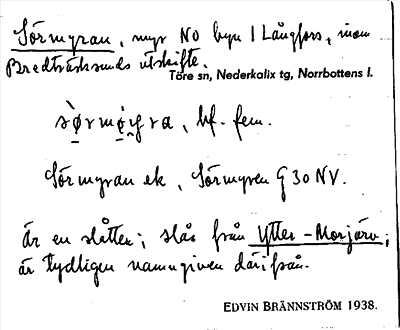 Sörmyran, myr NO byn i Långfors, inom
Bredträsksunds utskifte.
Töre sn, Nederkalix tg, Norrbottens l.
bf. fem.
Sörmyran ek, Sörmyren G 30 NV.
Är en slåtter; slås från Ytter-Morjärv;
är tydligen namngiven därifrån.
EDVIN BRÄNNSTRÖM 1938.